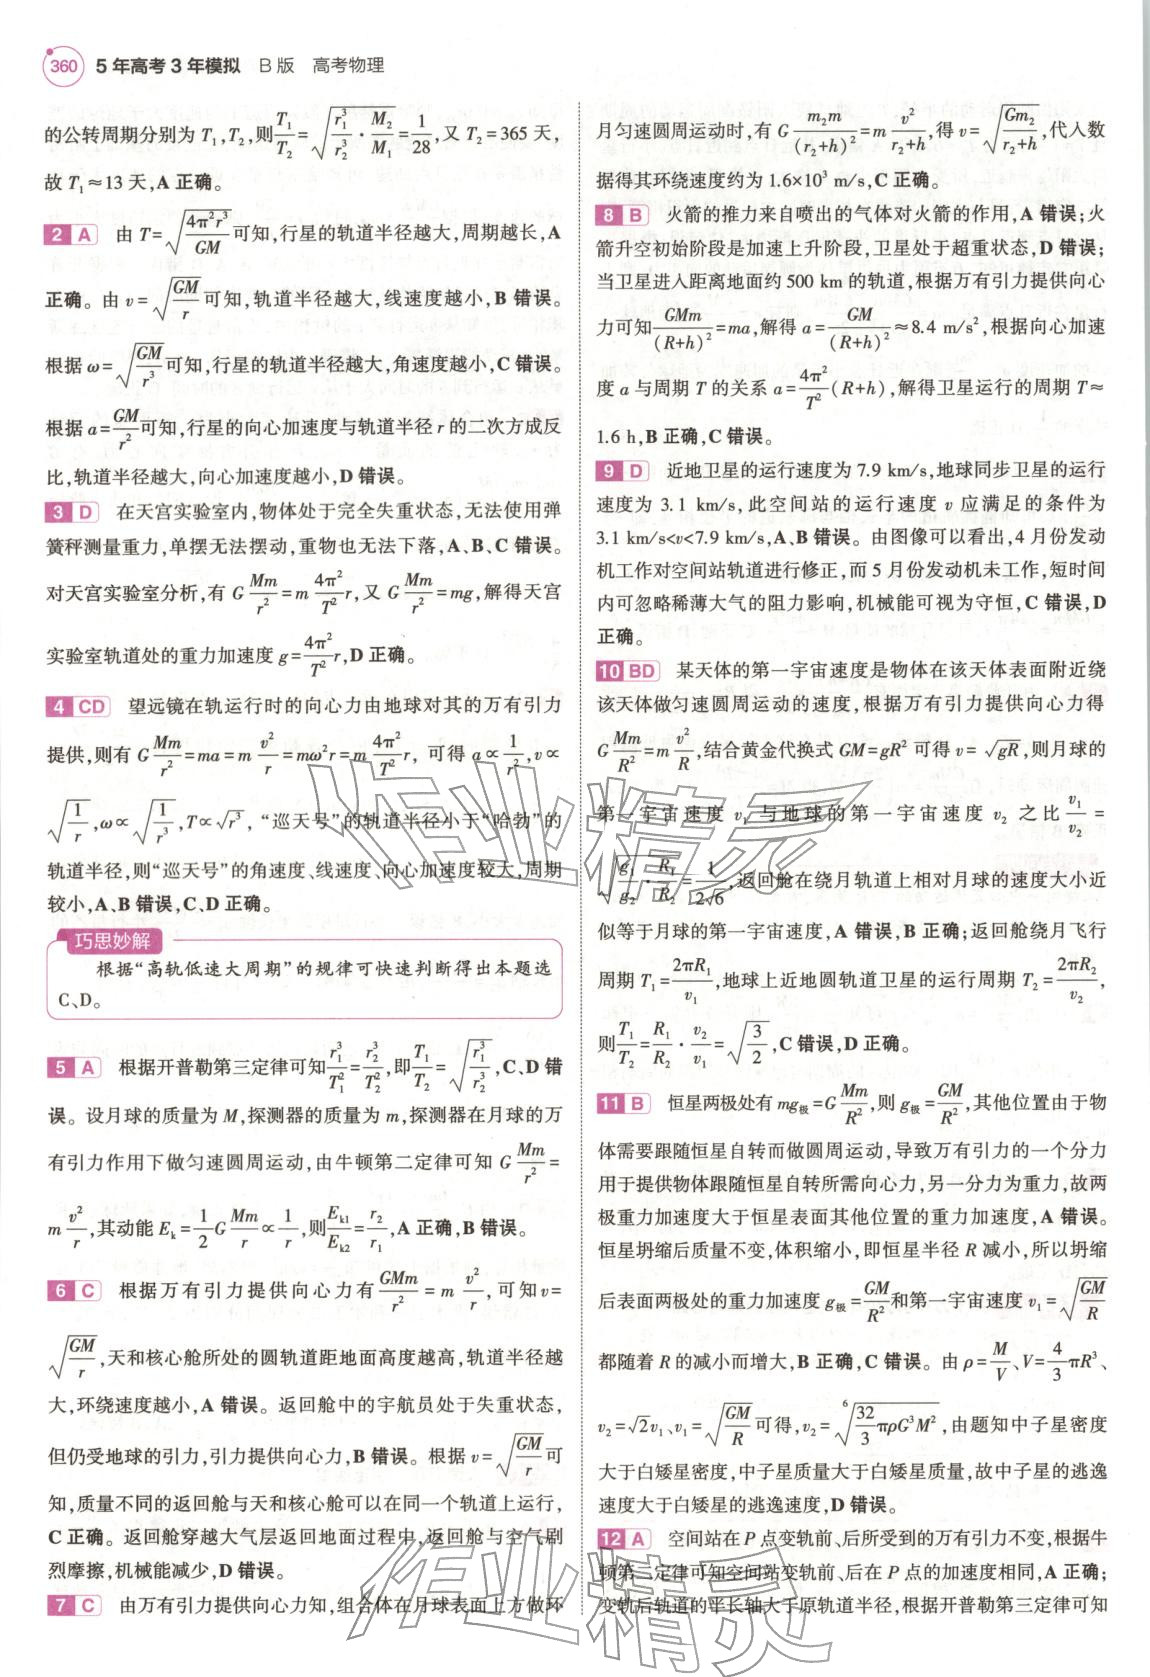 360 5年高考3年模拟 B版 高考物理
的公转周期分别为 T₁,T₂,则T₁/T₂=√(r₁³/r₂³·M₂/M₁)=1/28,又 T₂=365 天,
故 T₁≈13 天,A 正确。
2 A 由 T=√(4π²r³/GM)可知,行星的轨道半径越大,周期越长,A
正确。由 v=√(GM/r)可知,轨道半径越大,线速度越小,B 错误。
根据 ω=√(GM/r³)可知,行星的轨道半径越大,角速度越小,C 错误。
根据 a=GM/r²可知,行星的向心加速度与轨道半径 r 的二次方成反
比,轨道半径越大,向心加速度越小,D 错误。
3 D 在天宫实验室内,物体处于完全失重状态,无法使用弹
簧秤测量重力,单摆无法摆动,重物也无法下落,A、B、C 错误。
对天宫实验室分析,有 G Mm/r²=m 4π²/T² r,又 G Mm/r²=mg,解得天宫
实验室轨道处的重力加速度 g=4π²/T² r,D 正确。
4 CD 望远镜在轨运行时的向心力由地球对其的万有引力
提供,则有 G Mm/r²=ma=m v²/r=mω²r=m 4π²/T² r, 可得 a∝1/r²,v∝
√(1/r),ω∝√(1/r³),T∝√r³, “巡天号”的轨道半径小于“哈勃”的
轨道半径,则“巡天号”的角速度、线速度、向心加速度较大,周期
较小,A、B 错误,C、D 正确。
巧思妙解
根据“高轨低速大周期”的规律可快速判断得出本题选
C、D。
5 A 根据开普勒第三定律可知r₁³/T₁²=r₂³/T₂²,即T₁/T₂=√(r₁³/r₂³),C、D 错
误。设月球的质量为 M,探测器的质量为 m,探测器在月球的万
有引力作用下做匀速圆周运动,由牛顿第二定律可知 G Mm/r²=
m v²/r,其动能 Eₖ=1/2 G Mm/r∝1/r,则Eₖ₁/Eₖ₂=r₂/r₁,A 正确,B 错误。
6 C 根据万有引力提供向心力有GMm/r²=m v²/r,可知 v=
√(GM/r),天和核心舱所处的圆轨道距地面高度越高,轨道半径越
大,环绕速度越小,A 错误。返回舱中的宇航员处于失重状态,
但仍受地球的引力,引力提供向心力,B 错误。根据 v=√(GM/r)可
知,质量不同的返回舱与天和核心舱可以在同一个轨道上运行,
C 正确。返回舱穿越大气层返回地面过程中,返回舱与空气剧
烈摩擦,机械能减少,D 错误。
7 C 由万有引力提供向心力知,组合体在月球表面上方做环
月匀速圆周运动时,有 G m₂m/(r₂+h)²=m v²/(r₂+h),得 v=√(Gm₂/(r₂+h)),代入数
据得其环绕速度约为 1.6×10³ m/s,C 正确。
8 B 火箭的推力来自喷出的气体对火箭的作用,A 错误;火
箭升空初始阶段是加速上升阶段,卫星处于超重状态,D 错误;
当卫星进入距离地面约 500 km 的轨道,根据万有引力提供向心
力可知GMm/(R+h)²=ma,解得 a=GM/(R+h)²≈8.4 m/s²,根据向心加速
度 a 与周期 T 的关系 a=4π²/T²(R+h),解得卫星运行的周期 T≈
1.6 h,B 正确,C 错误。
9 D 近地卫星的运行速度为 7.9 km/s,地球同步卫星的运行
速度为 3.1 km/s,此空间站的运行速度 v 应满足的条件为
3.1 km/s<v<7.9 km/s,A、B 错误。由图像可以看出,4 月份发动
机工作对空间站轨道进行修正,而 5 月份发动机未工作,短时间
内可忽略稀薄大气的阻力影响,机械能可视为守恒,C 错误,D
正确。
10 BD 某天体的第一宇宙速度是物体在该天体表面附近绕
该天体做匀速圆周运动的速度,根据万有引力提供向心力得
G Mm/R²=m v²/R,结合黄金代换式 GM=gR² 可得 v=√gR,则月球的
第一宇宙速度 v₁ 与地球的第一宇宙速度 v₂ 之比 v₁/v₂=
√(g₁/g₂·R₁/R₂)=1/(2√6),返回舱在绕月轨道上相对月球的速度大小近
似等于月球的第一宇宙速度,A 错误,B 正确;返回舱绕月飞行
周期 T₁=2πR₁/v₁,地球上近地圆轨道卫星的运行周期 T₂=2πR₂/v₂,
则T₁/T₂=R₁/R₂·v₂/v₁=√(3/2),C 错误,D 正确。
11 B 恒星两极处有 mg极=G Mm/R²,则 g极=GM/R²,其他位置由于物
体需要跟随恒星自转而做圆周运动,导致万有引力的一个分力
用于提供物体跟随恒星自转所需向心力,另一分力为重力,故两
极重力加速度大于恒星表面其他位置的重力加速度,A 错误。
恒星坍缩后质量不变,体积缩小,即恒星半径 R 减小,所以坍缩
后表面两极处的重力加速度 g极=GM/R²和第一宇宙速度 v₁=√(GM/R)
都随着 R 的减小而增大,B 正确,C 错误。由 ρ=M/V、V=4/3 πR³、
v₂=√2v₁、v₁=√(GM/R)可得,v₂=⁶√(32/3 πρG³M²),由题知中子星密度
大于白矮星密度,中子星质量大于白矮星质量,故中子星的逃逸
速度大于白矮星的逃逸速度,D 错误。
12 A 空间站在 P 点变轨前、后所受到的万有引力不变,根据牛
顿第二定律可知空间站变轨前、后在 P 点的加速度相同,A 正确;
变轨后轨道的半长轴大于原轨道半径,根据开普勒第三定律可知
作业精灵
作业精灵